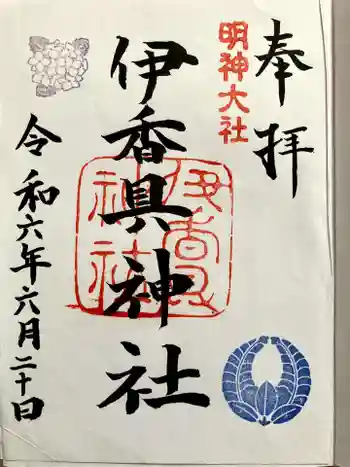 奉拝
明神大社
伊香具神社
伊香具神社
令和六年六月二十日